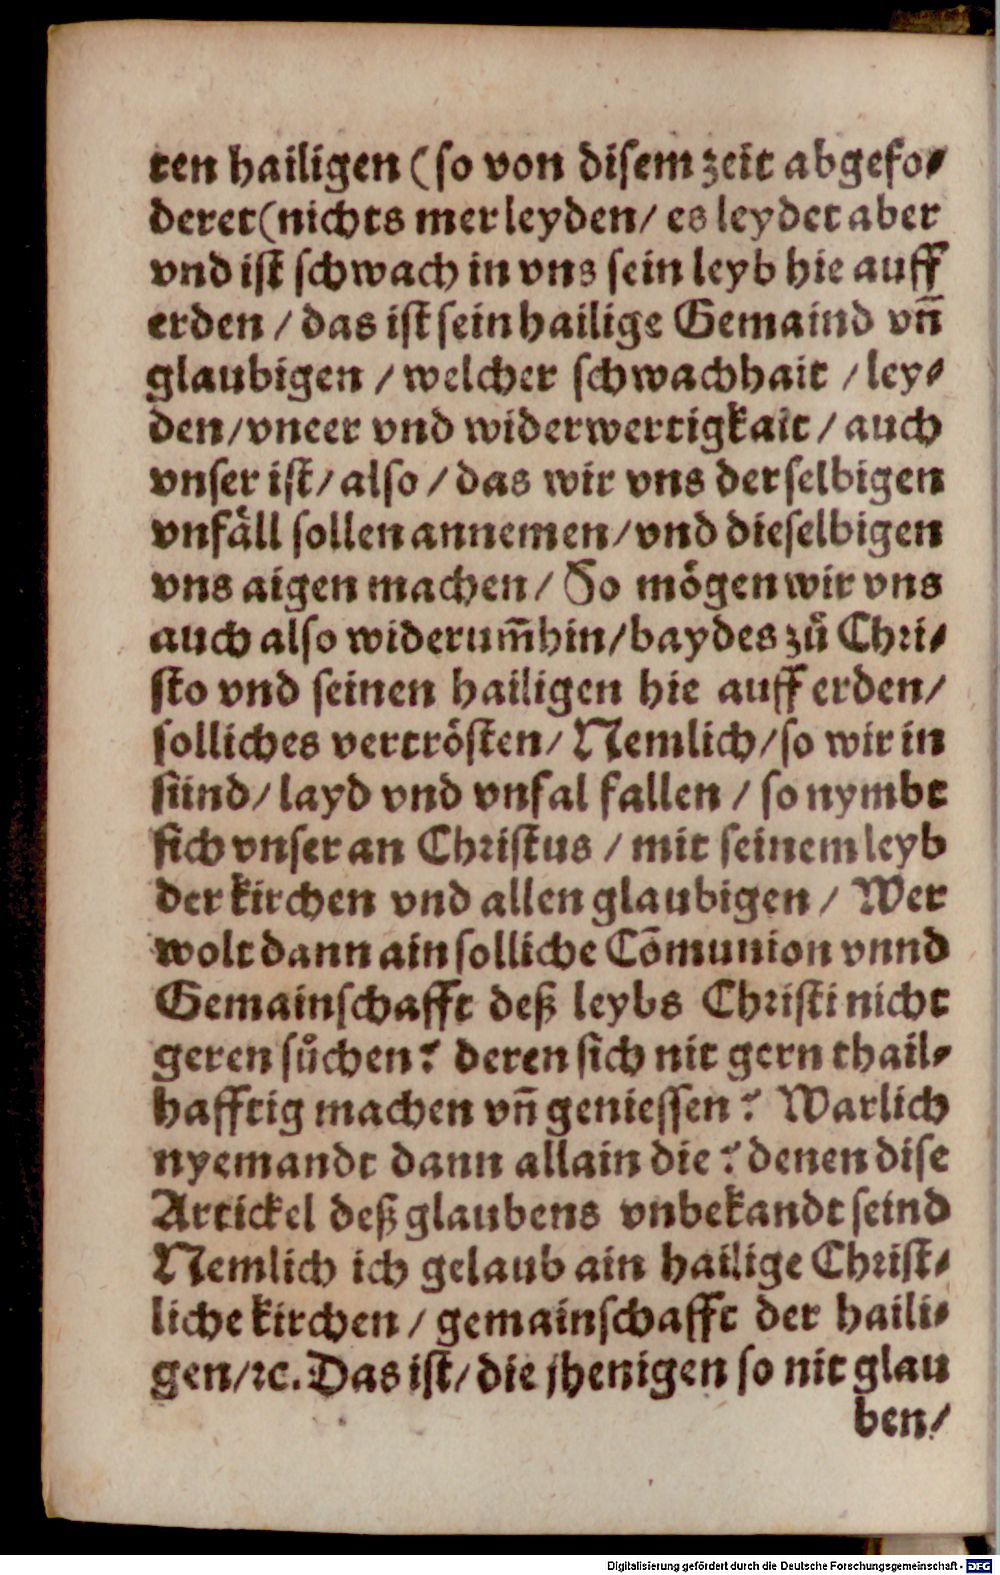 ten hailigen (so von disem zeit abgefo⸗
deret(nichts mer leyden/ es leydet aber
vnd ist schwach in vns sein leyb hie auff
erden / das ist sein hailige Gemaind vn̄
glaubigen / welcher schwachhait / ley⸗
den/vneer vnd widerwertigkait / auch
vnser ist/ also / das wir vns derselbigen
vnfäll sollen annemen/vnd dieselbigen
vns aigen machen/ So mögen wir vns
auch also widerum̄hin/baydes zů Chri⸗
sto vnd seinen hailigen hie auff erden/
solliches vertrösten/ Nemlich/so wir in
sünd/ layd vnd vnfal fallen / so nymbt
sich vnser an Christus / mit seinem leyb
der kirchen vnd allen glaubigen / Wer
wolt dann ain solliche Cōmunion vnnd
Gemainschafft deß leybs Christi nicht
geren sůchen? deren sich nit gern thail⸗
hafftig machen vn̄ geniessen? Warlich
nyemandt dann allain die? denen dise
Artickel deß glaubens vnbekandt seind
Nemlich ich gelaub ain hailige Christ⸗
liche kirchen / gemainschafft der haili⸗
gen/ꝛc. Das ist/ die jhenigen so nit glau
ben/
Digitalisierung gefördert durch die Deutsche Forschungsgemeinschaft - DFG